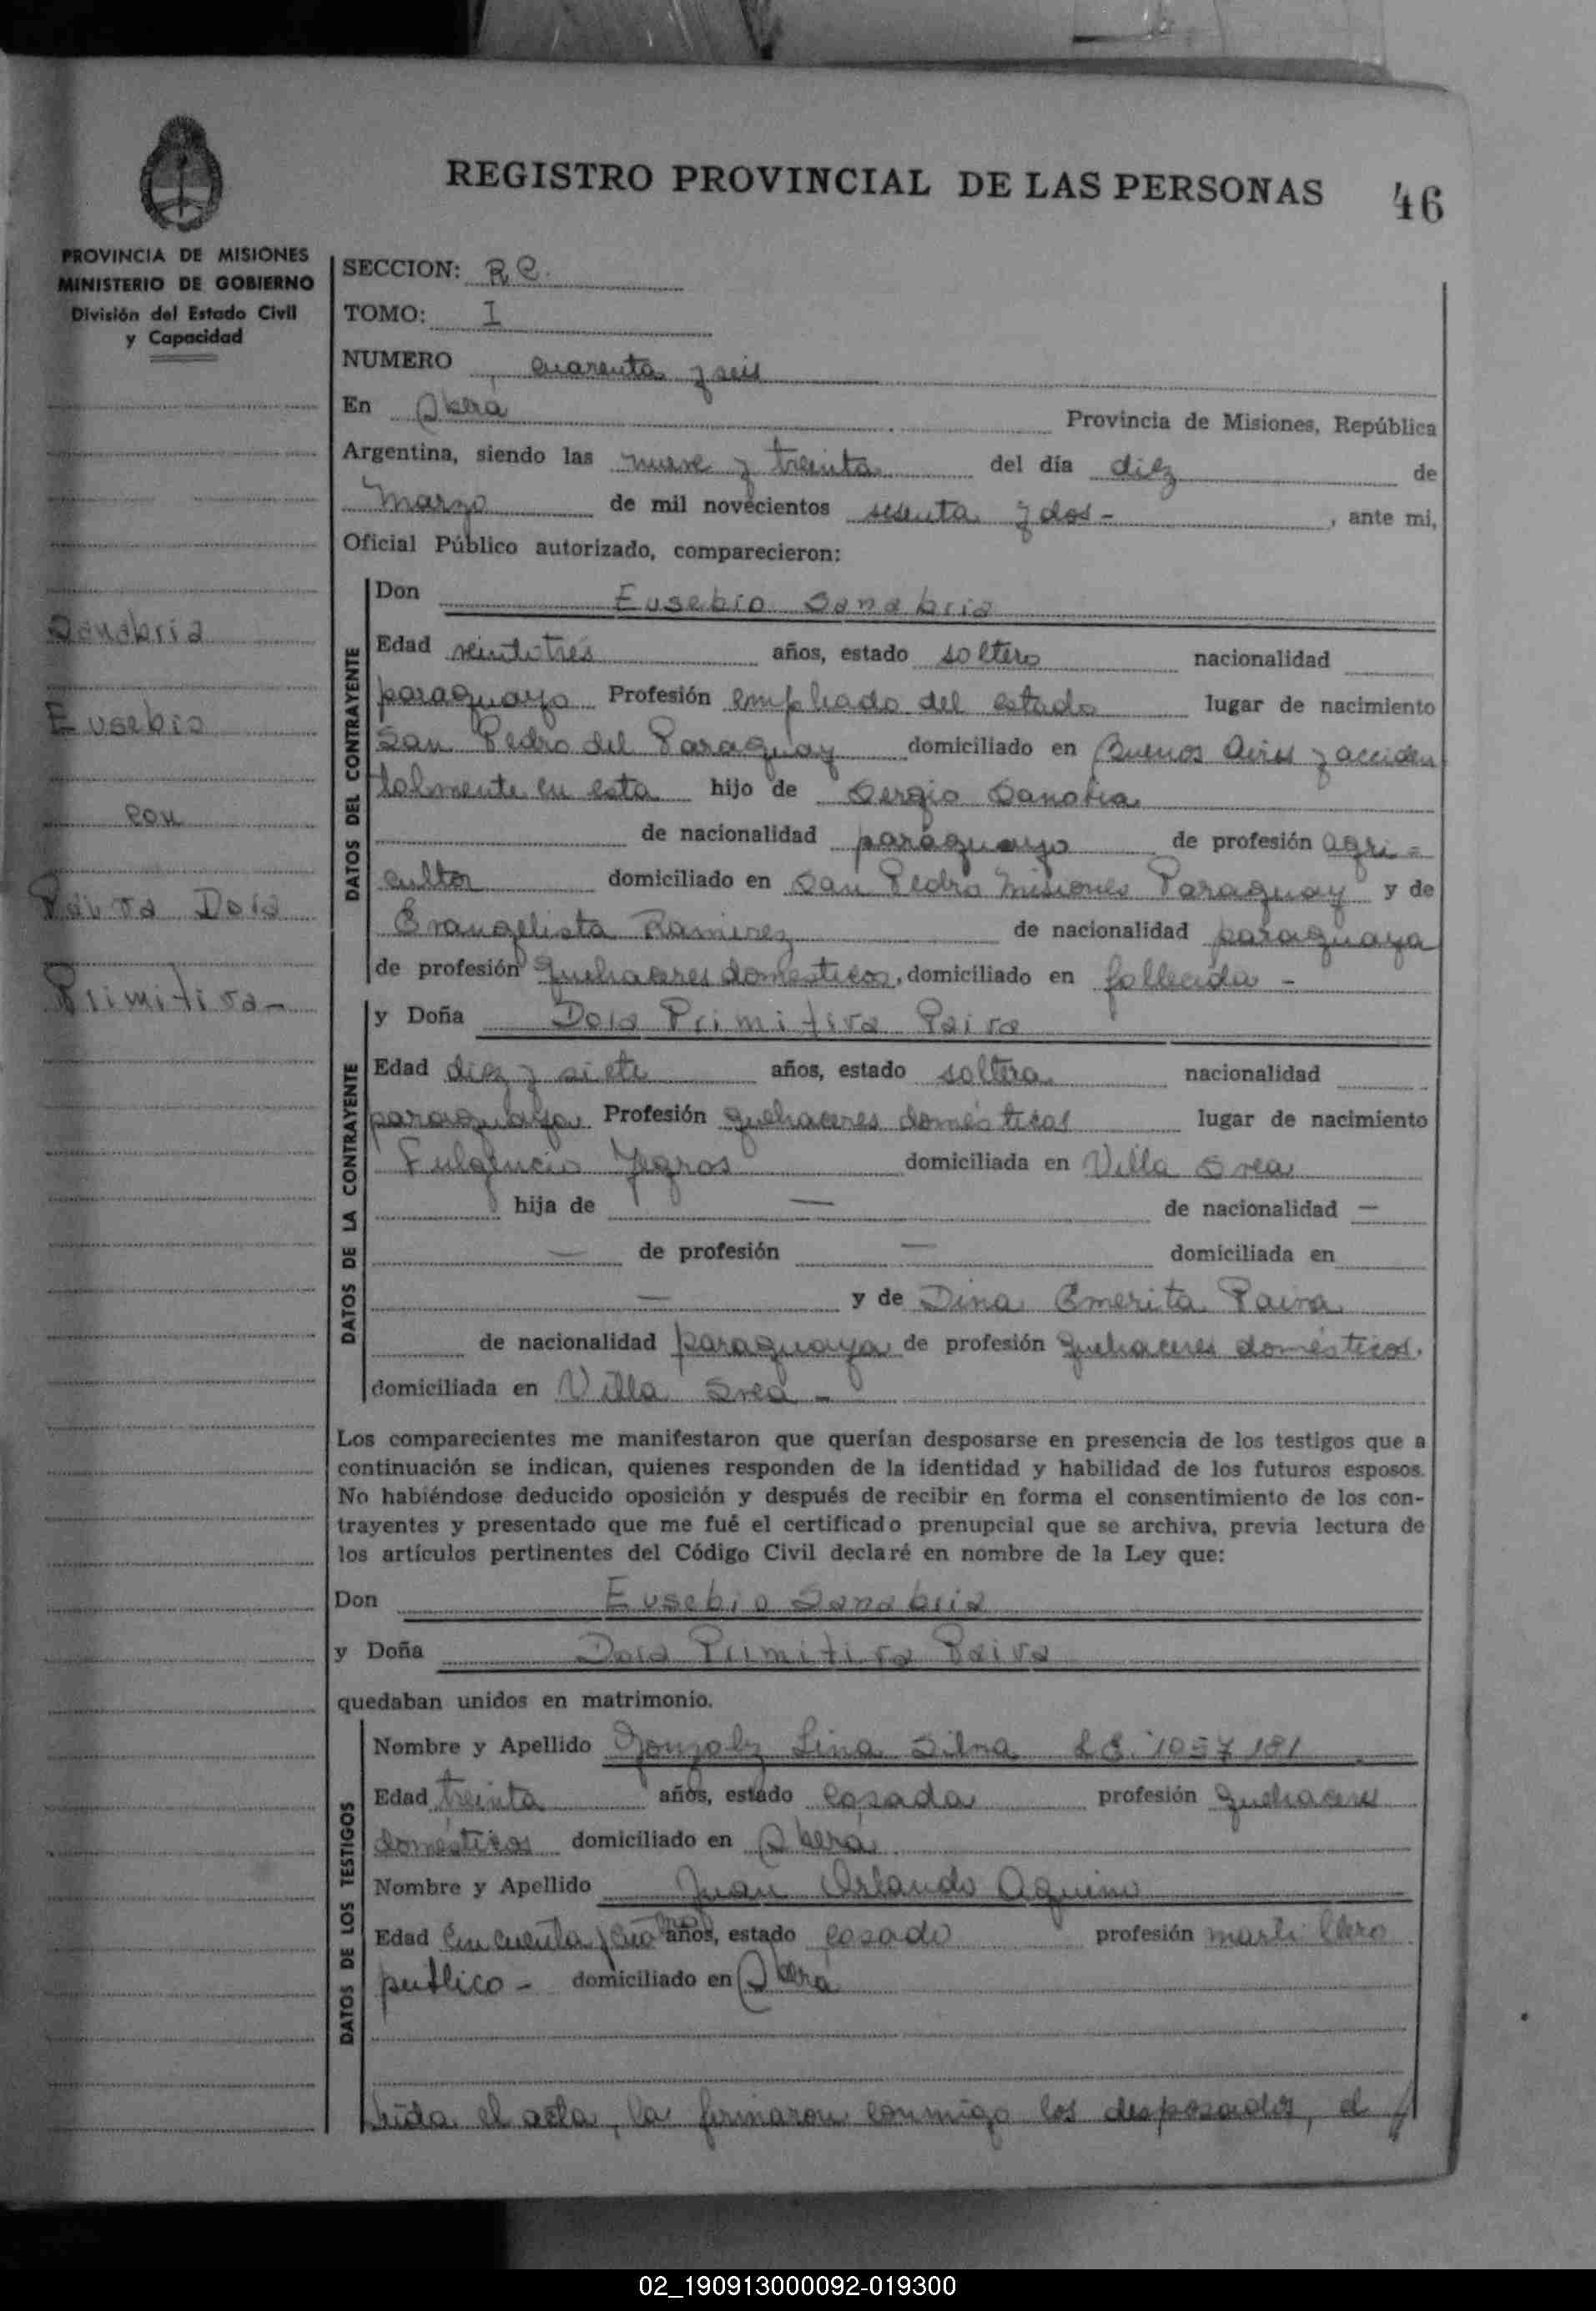 REGISTRO PROVINCIAL DE LAS PERSONAS 46
PROVINCIA DE MISIONES
MINISTERIO DE GOBIERNO
División del Estado Civil
y Capacidad
Sanabria
Eusebio
con
Paiva Dora
Primitiva-
SECCION: R.C.
TOMO: I
NUMERO cuarenta y seis
En Oberá Provincia de Misiones, República
Argentina, siendo las nueve y treinta del día diez de
marzo de mil novecientos sesenta y dos- , ante mi,
Oficial Público autorizado, comparecieron:
DATOS DEL CONTRAYENTE
Don Eusebio Sanabria
Edad veintitrés años, estado soltero nacionalidad
paraguayo Profesión empleado del estado lugar de nacimiento
San Pedro del Paraguay domiciliado en Buenos Aires y acciden
talmente en esta hijo de Sergio
de nacionalidad paraguayo de profesión agri-
cultor domiciliado en San Pedro Misiones Paraguay y de
Evangelista Ramirez de nacionalidad paraguaya
de profesión quehaceres domésticos, domiciliado en fallecida -
DATOS DE LA CONTRAYENTE
y Doña Primitiva Paiva
Edad diez y siete años, estado soltera nacionalidad
paraguaya Profesión quehaceres domésticos lugar de nacimiento
Fulgencio Yegros domiciliada en Villa
hija de — de nacionalidad —
— de profesión — domiciliada en
— y de Dina Emerita Paiva
de nacionalidad paraguaya de profesión quehaceres domésticos.
domiciliada en Villa -
Los comparecientes me manifestaron que querían desposarse en presencia de los testigos que a
continuación se indican, quienes responden de la identidad y habilidad de los futuros esposos.
No habiéndose deducido oposición y después de recibir en forma el consentimiento de los con-
trayentes y presentado que me fué el certificado prenupcial que se archiva, previa lectura de
los artículos pertinentes del Código Civil declaré en nombre de la Ley que:
Don Eusebio Sanabria
y Doña Primitiva Paiva
quedaban unidos en matrimonio.
DATOS DE LOS TESTIGOS
Nombre y Apellido Lina Silva
Edad treinta años, estado casada profesión quehaceres
domésticos domiciliado en Oberá
Nombre y Apellido Juan Orlando Aquino
Edad cincuenta y años, estado casado profesión martillero
público - domiciliado en Oberá
Leída el acta, la firmaron conmigo los desposados, el
02_190913000092-019300